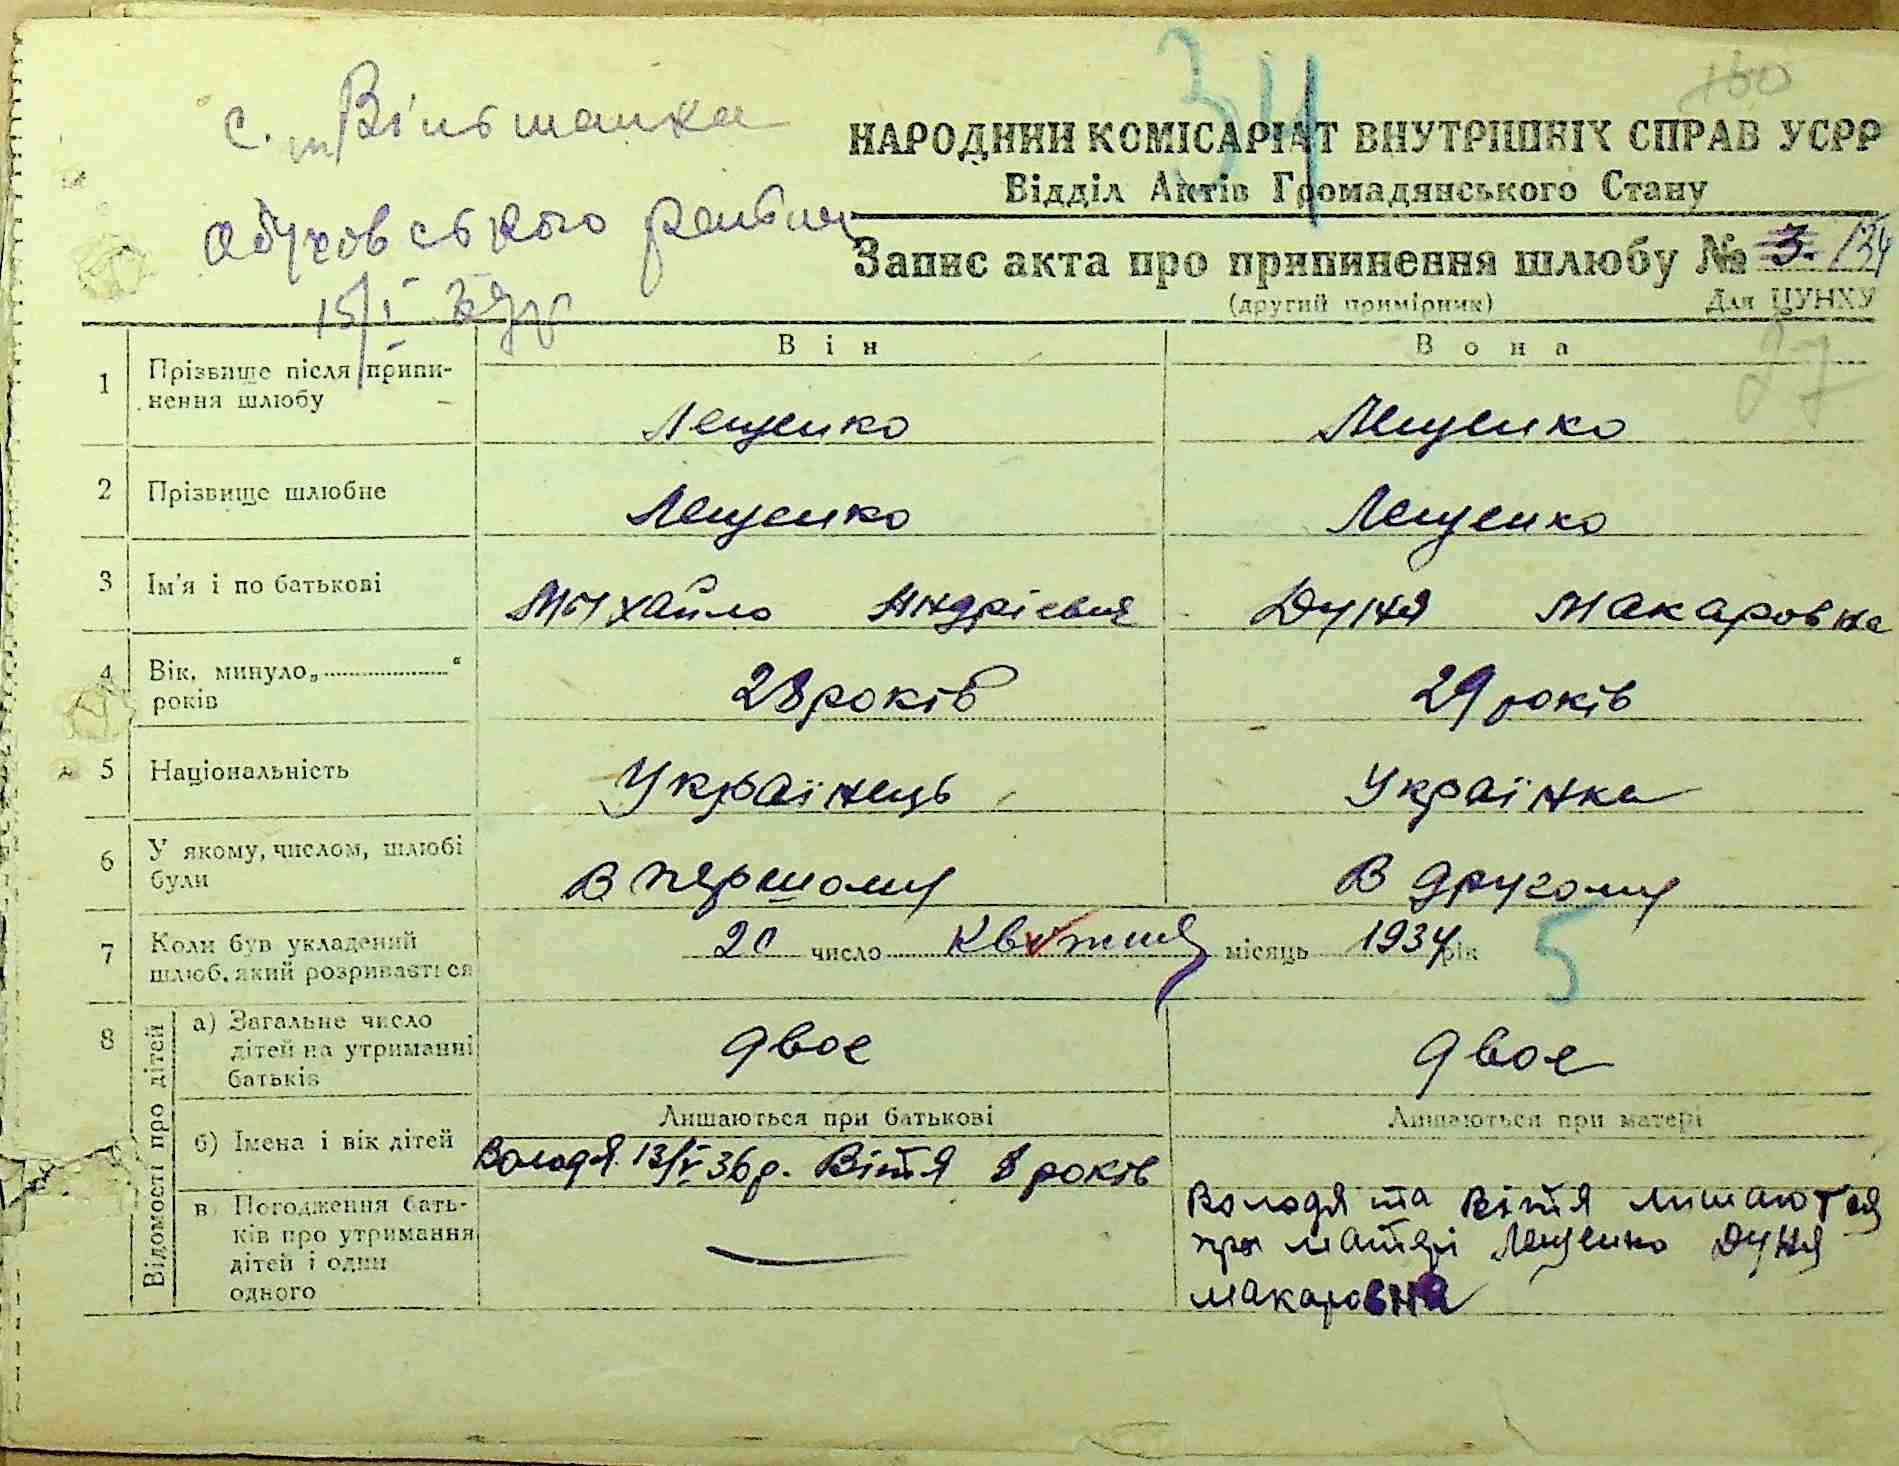 34
160
с. Вільшанка
Обуховського району
15/I 39р
НАРОДНИЙ КОМІСАРІАТ ВНУТРІШНІХ СПРАВ УСРР
Відділ Актів Громадянського Стану
Запис акта про припинення шлюбу № 3. /34
(другий примірник) Для ЦУНХУ
27
Він Вона
1 Прізвище після припи-
нення шлюбу
Лещенко Лещенко
2 Прізвище шлюбне Лещенко Лещенко
3 Ім'я і по батькові Михайло Андрієвич Дуня Макаровна
4 Вік, минуло „..........“
років
28 років 29 років
5 Національність Українець Українка
6 У якому, числом, шлюбі
були
В першому В другому
7 Коли був укладений
шлюб, який розривається
20 число Квітня місяць 1934 рік
5
8 Відомості про дітей
а) Загальне число
дітей на утриманні
батьків
двое двое
Лишаються при батькові Лишаються при матері
б) Імена і вік дітей
Володя 13/V 36р. Вітя 8 років
в Погодження бать-
ків про утримання
дітей і один
одного
Володя та Вітя лишаются
при матері Лещенко Дуня
Макаровна